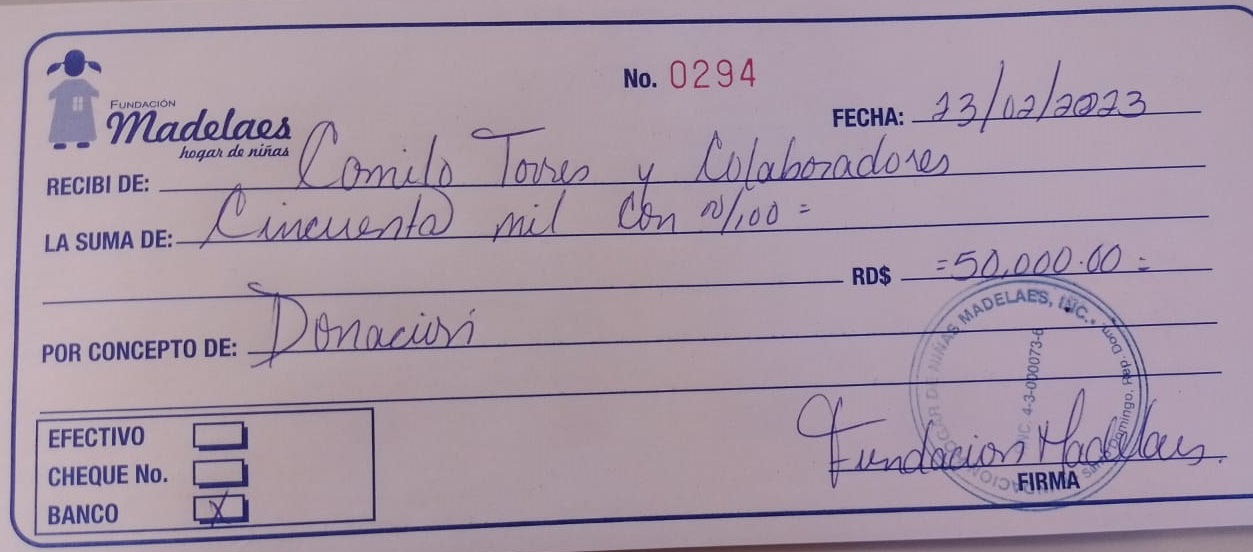 FUNDACIÓN
Madelaes
hogar de niñas
No. 0294
FECHA: 23/02/2023
RECIBI DE: Camilo Torres y Colaboradores
LA SUMA DE: Cincuenta mil con 00/100 =
RD$ =50,000.00=
POR CONCEPTO DE: Donación
EFECTIVO
CHEQUE No.
BANCO X
Fundacion Madelaes.
FIRMA
HOGAR DE NIÑAS MADELAES, INC.
4-3-000073-6
Santo Domingo, Rep. Dom.